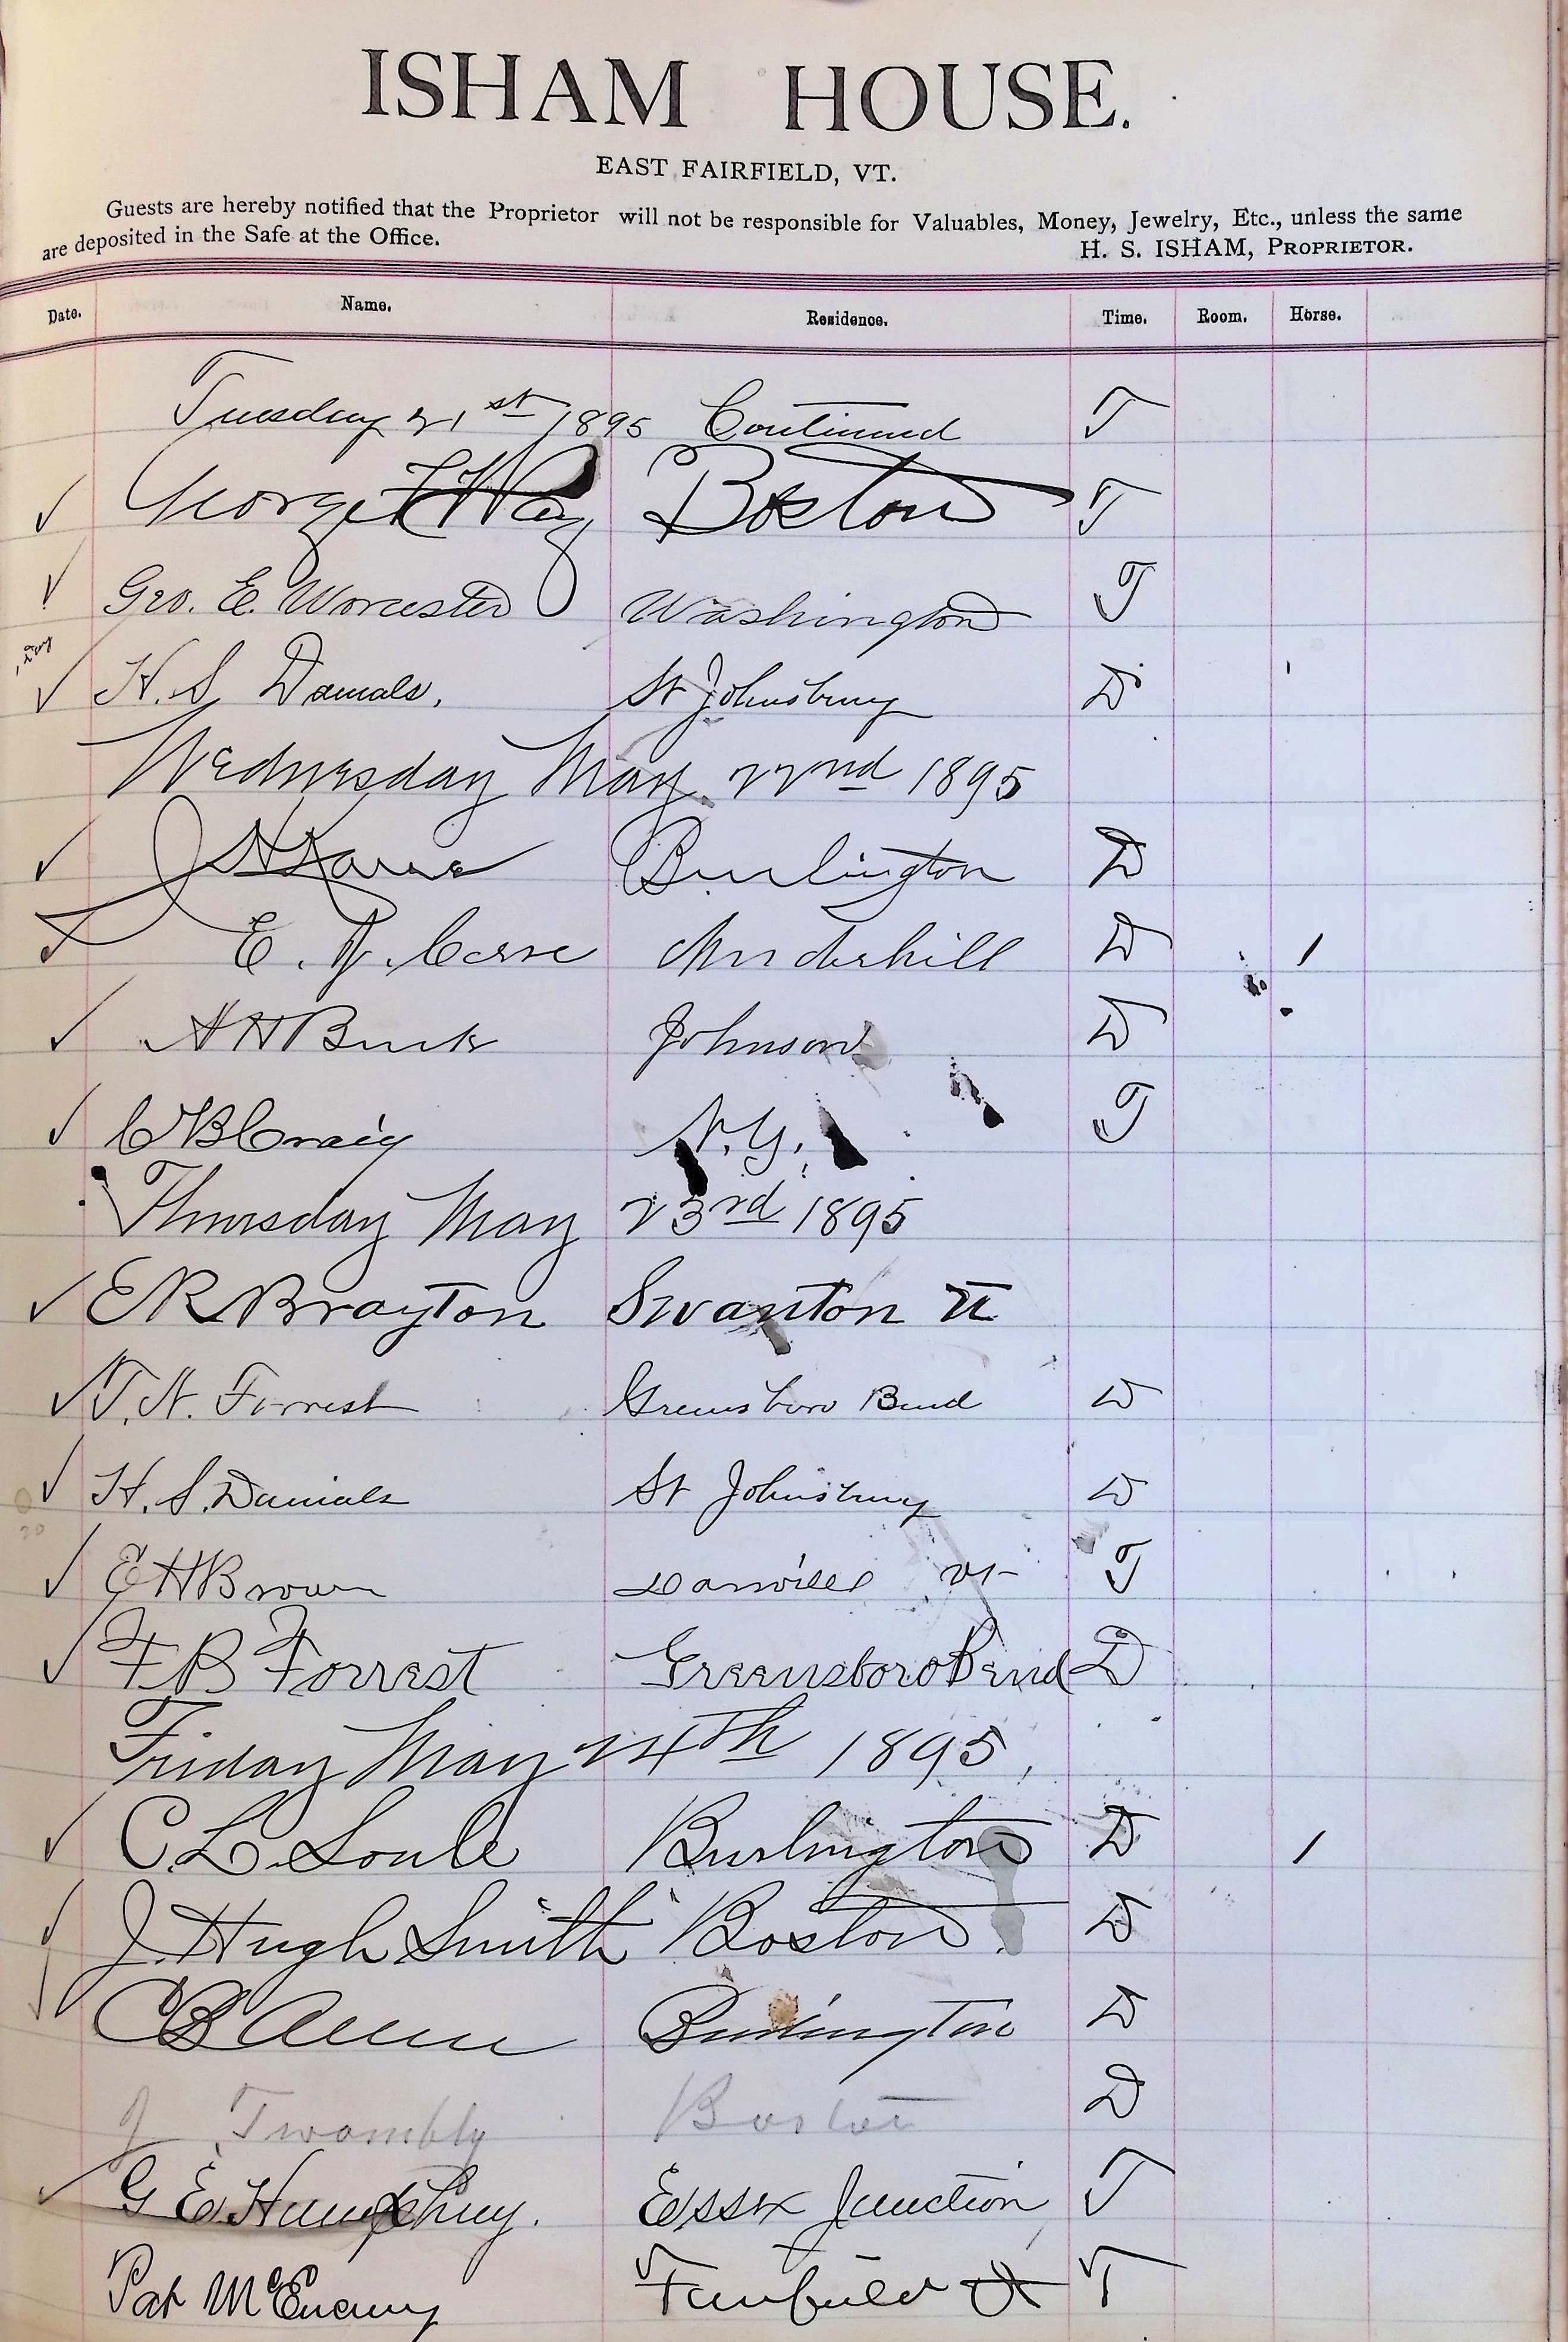 ISHAM HOUSE.
EAST FAIRFIELD, VT.
Guests are hereby notified that the Proprietor will not be responsible for Valuables, Money, Jewelry, Etc., unless the same
are deposited in the Safe at the Office.
H. S. ISHAM, PROPRIETOR.
Date. Name. Residence. Time. Room. Horse.
Tuesday 21st 1895 Continued T
✓ George F Way Boston T
✓ Geo. E. Worcester Washington T
✓ H. S. Daniels. St Johnsbury D
Wednesday May 22nd 1895
✓ Burlington D
✓ E. Underhill D /
✓ Johnson D
✓ C W B Craig N.Y. T
Thursday May 23rd 1895
✓ E R Brayton Swanton Vt
✓ T. N. Forrest Greensboro Bend D
✓ H. S. Daniels St Johnsbury D
✓ E H Brown Danville Vt T
✓ F B Forrest Greensboro Bend D
Friday May 24th 1895,
✓ C. L. Soule Burlington D /
✓ J. Hugh Smith Boston. D
✓ C B Burlington D
J Twombly Boston D
✓ G E Humphrey. Essex Junction T
Pat McEnany Fairfield Vt T